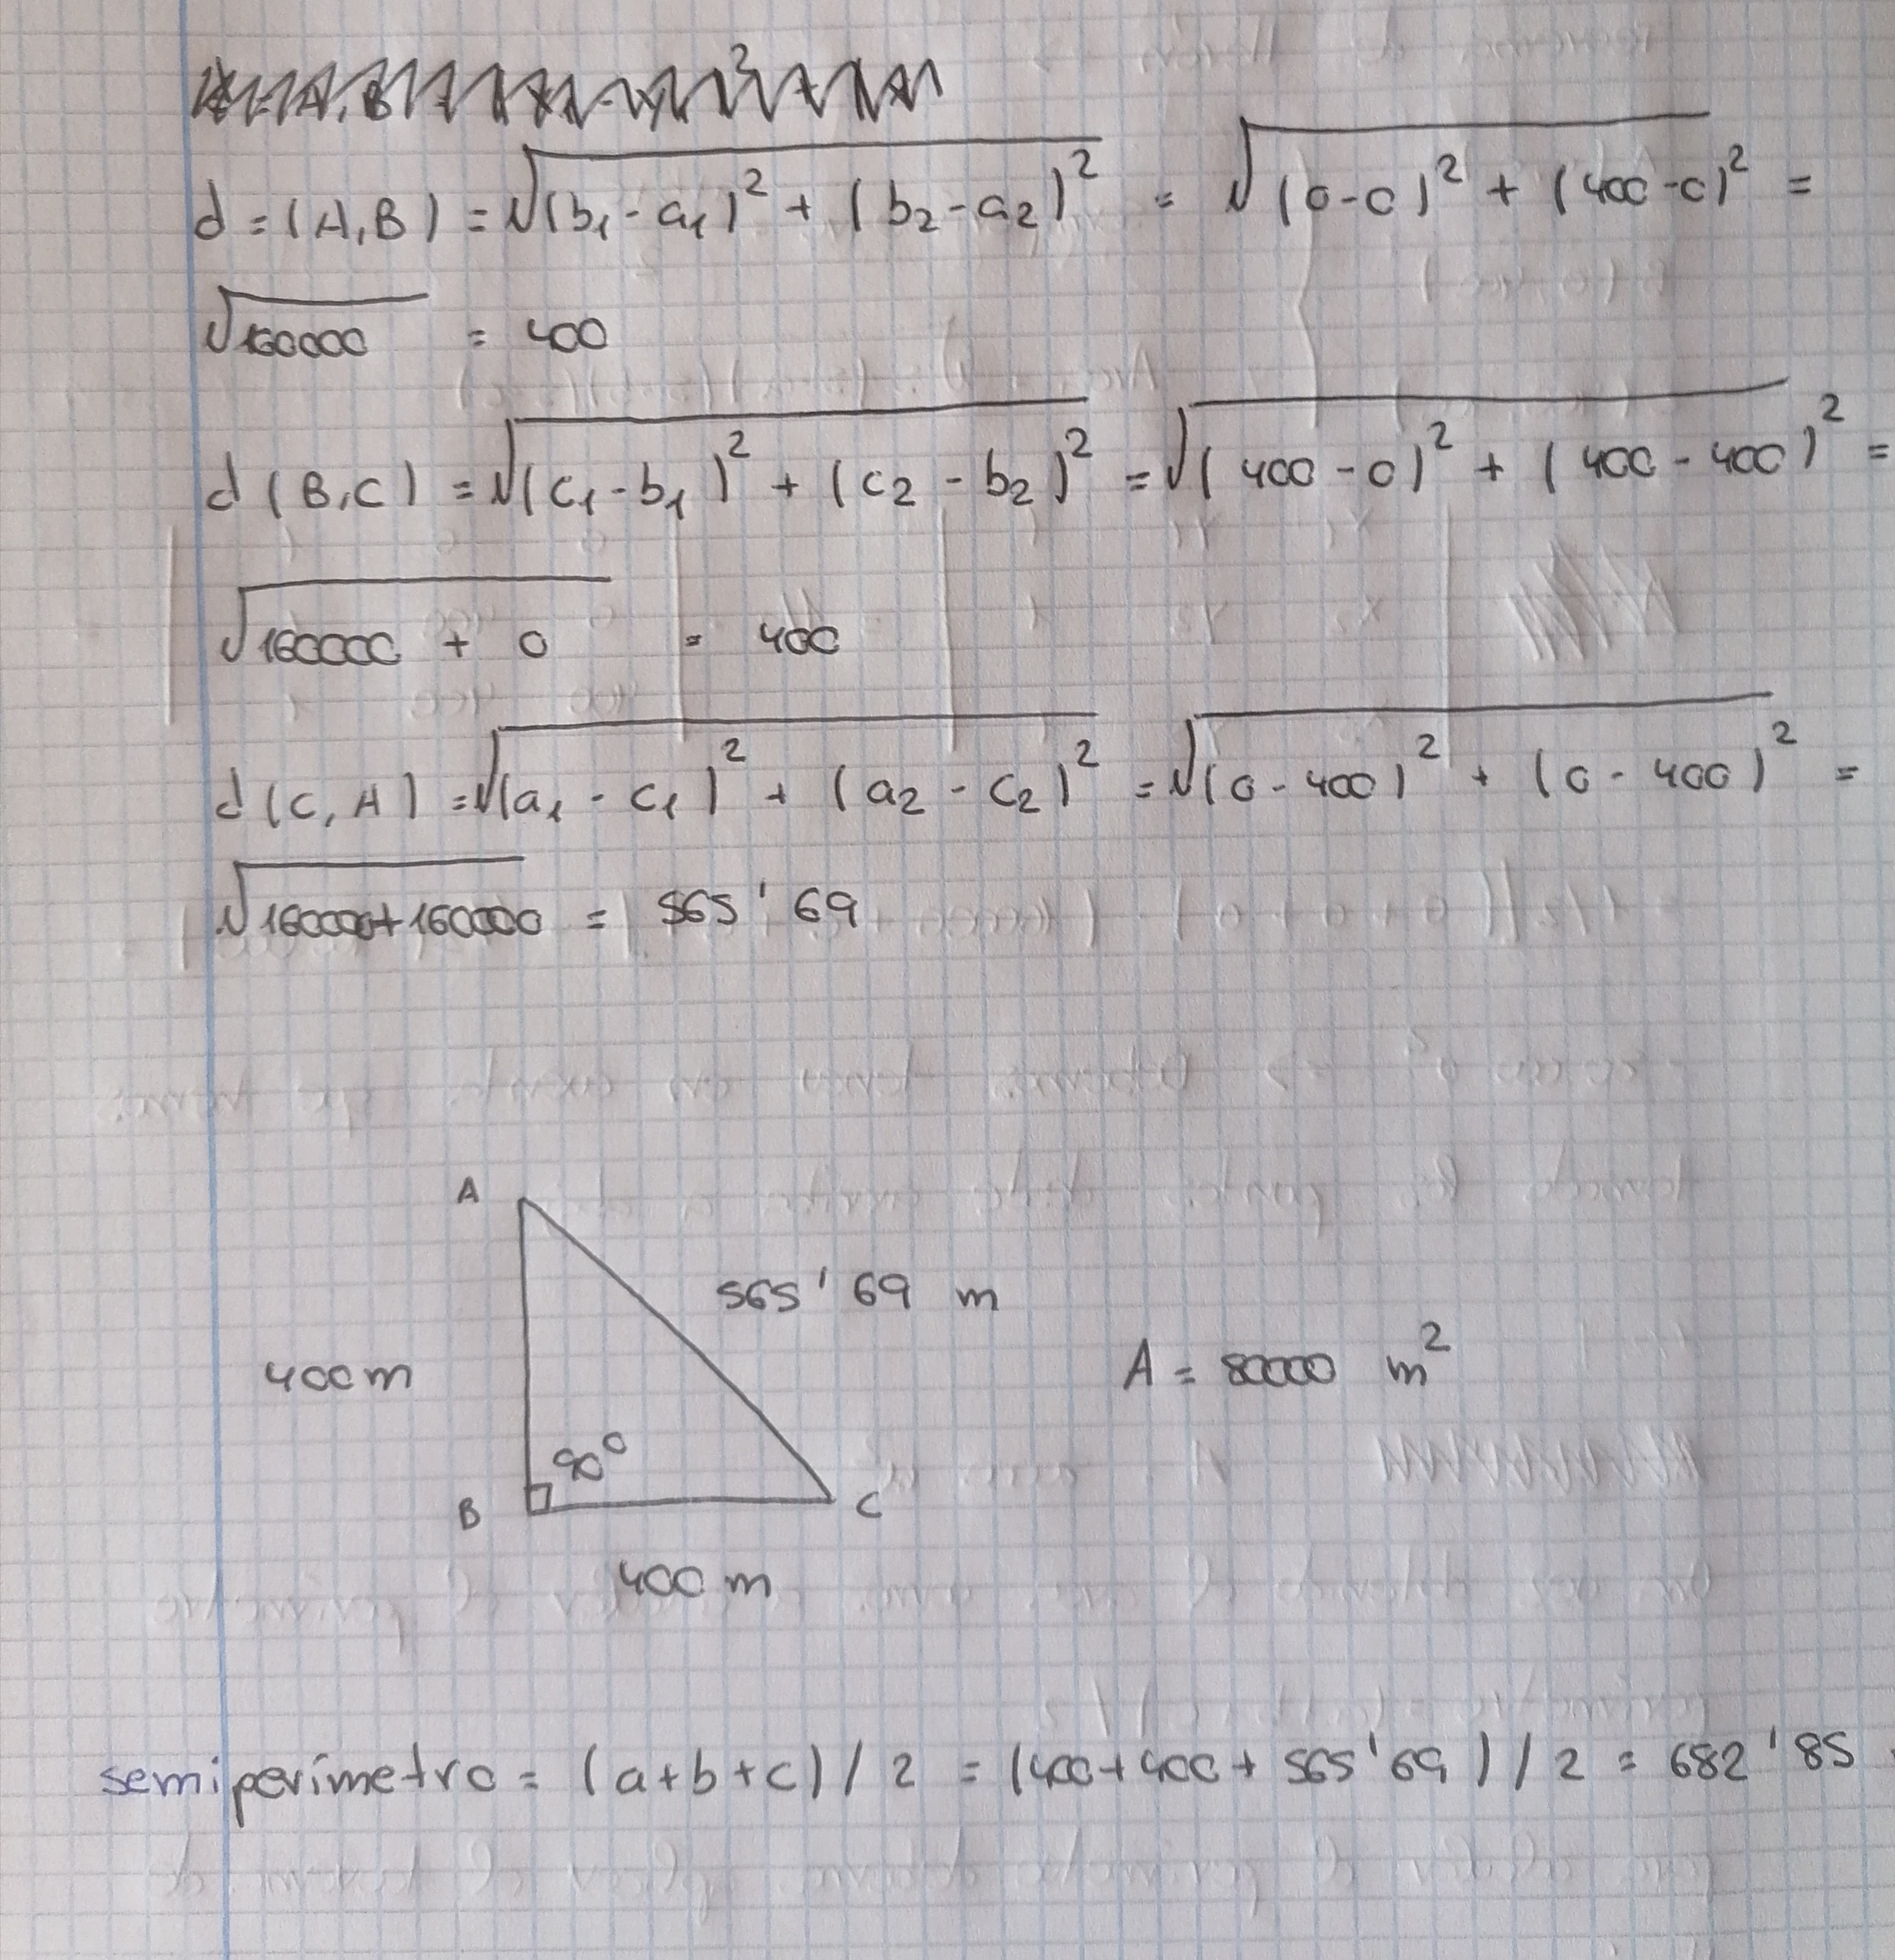 d = (A,B) = √(b₁ - a₁)² + (b₂ - a₂)² = √(0-0)² + (400-0)² =
√160000 = 400
d (B,C) = √(c₁ - b₁)² + (c₂ - b₂)² = √(400 - 0)² + (400 - 400)² =
√160000 + 0 = 400
d (C, A) = √(a₁ - c₁)² + (a₂ - c₂)² = √(0 - 400)² + (0 - 400)² =
√160000+160000 = 565'69
A
565'69 m
400m
A = 80000 m²
90°
B
C
400 m
semiperímetro = (a+b+c) / 2 = (400+400+565'69) / 2 = 682'85